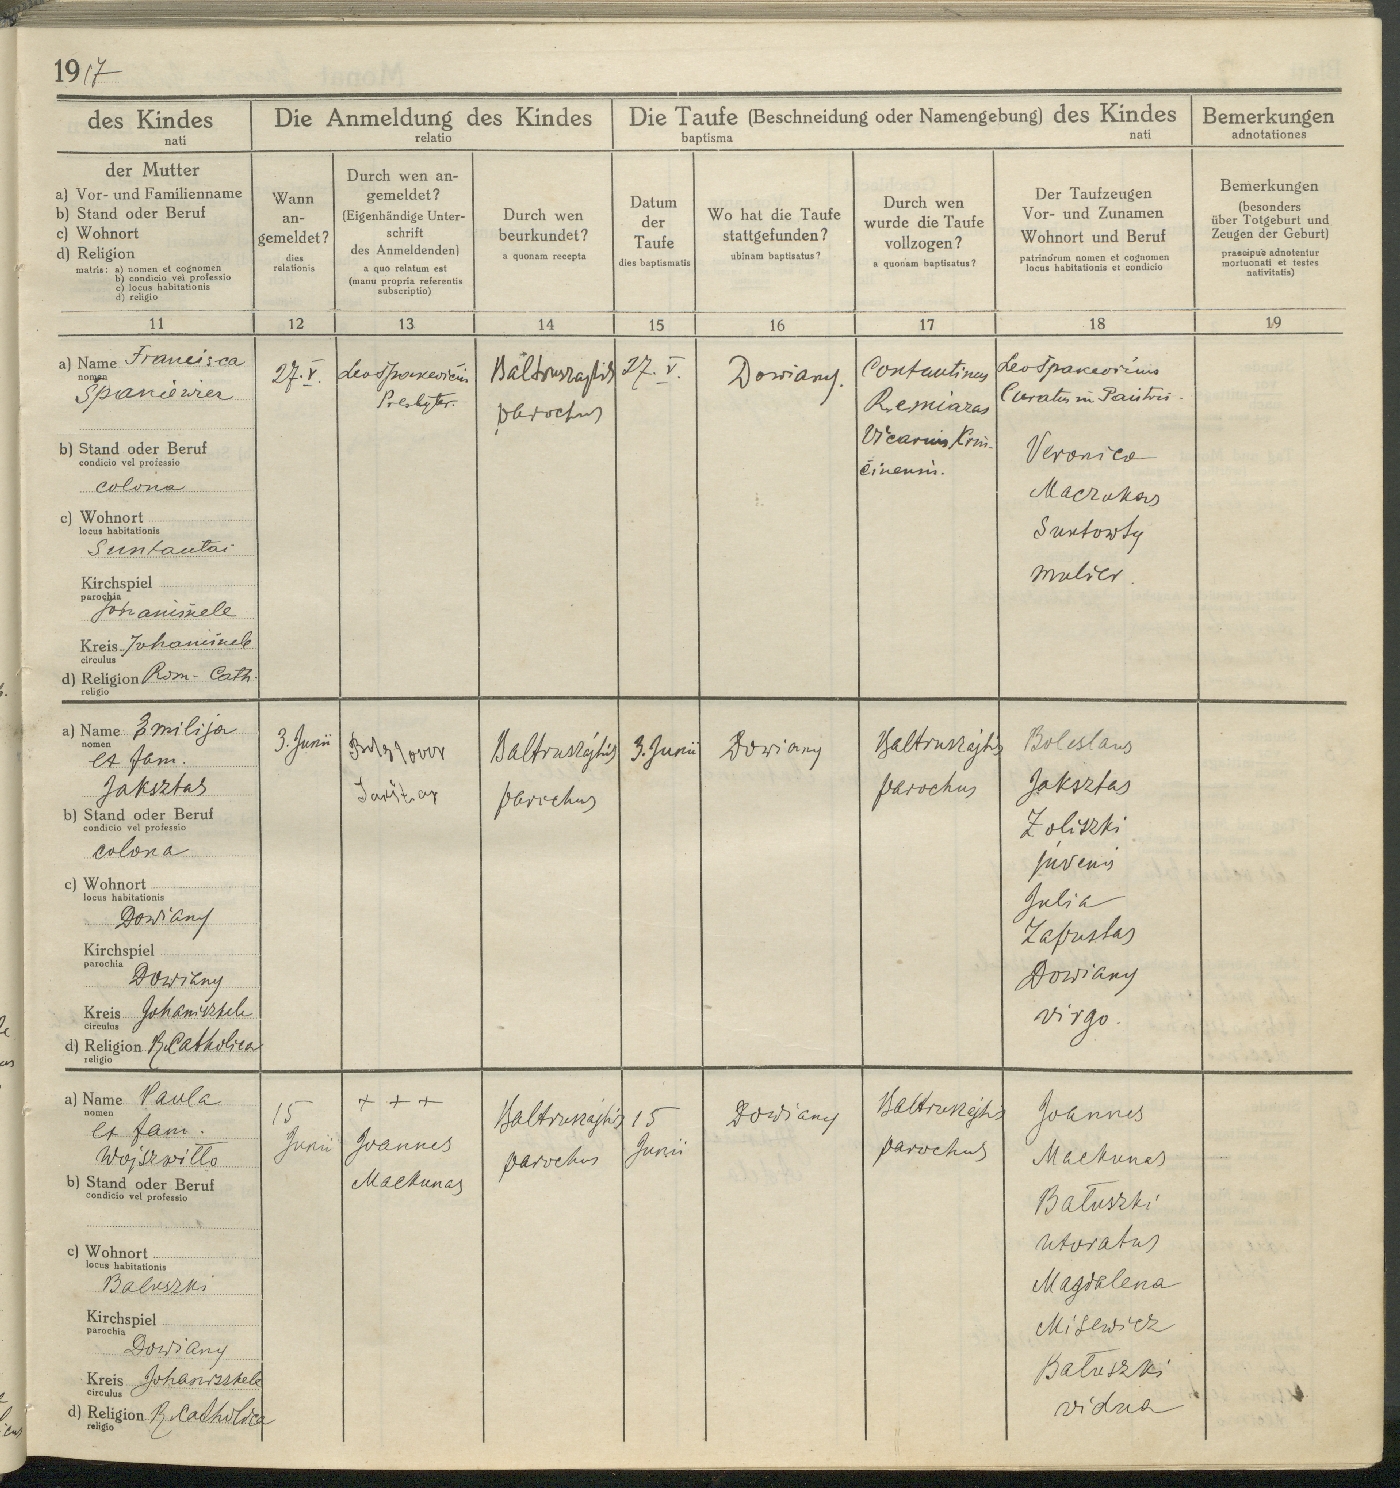 1917
des Kindes
nati
Die Anmeldung des Kindes
relatio
Die Taufe (Beschneidung oder Namengebung) des Kindes
baptisma nati
Bemerkungen
adnotationes
der Mutter
a) Vor- und Familienname
b) Stand oder Beruf
c) Wohnort
d) Religion
matris: a) nomen et cognomen
b) condicio vel professio
c) locus habitationis
d) religio
Wann
an-
gemeldet?
dies
relationis
Durch wen an-
gemeldet?
(Eigenhändige Unter-
schrift
des Anmeldenden)
a quo relatum est
(manu propria referentis
subscriptio)
Durch wen
beurkundet?
a quonam recepta
Datum
der
Taufe
dies baptismatis
Wo hat die Taufe
stattgefunden?
ubinam baptisatus?
Durch wen
wurde die Taufe
vollzogen?
a quonam baptisatus?
Der Taufzeugen
Vor- und Zunamen
Wohnort und Beruf
patrinorum nomen et cognomen
locus habitationis et condicio
Bemerkungen
(besonders
über Totgeburt und
Zeugen der Geburt)
praecipue adnotentur
mortuonati et testes
nativitatis)
11 12 13 14 15 16 17 18 19
a) Name Francisca
nomen
b) Stand oder Beruf
condicio vel professio
colona
c) Wohnort
locus habitationis
Suntautai
Kirchspiel
parochia
Johanišhele
Kreis
circulus
d) Religion Rom- Cath.
religio
27. V.
Presbyter.
Baltruszajtis
parochus
27. V.
Dowiany.
Constantinus
Remiazas
Vicarius
Veronica
mulier.
a) Name Emilija
nomen
et fam.
Joksztas
b) Stand oder Beruf
condicio vel professio
colona
c) Wohnort
locus habitationis
Dowiany
Kirchspiel
parochia
Dowiany
Kreis Johaniszkele
circulus
d) Religion R. Catholica
religio
3. Junii
Baltruszajtis
parochus
3. Junii
Dowiany
Baltruszajtis
parochus
Boleslaus
Joksztas
Zoliszki
juvenis
Julia
Zapustas
Dowiany
virgo.
a) Name Paula
nomen
et fam.
Wojszwiłło
b) Stand oder Beruf
condicio vel professio
c) Wohnort
locus habitationis
Baluszki
Kirchspiel
parochia
Dowiany
Kreis Johaniszkele
circulus
d) Religion R. Catholica
religio
15
Junii
+ + +
Joannes
Mackunas
Baltruszajtis
parochus
15
Junii
Dowiany
Baltruszajtis
parochus
Joannes
Mackunas
Bałuszki
uxoratus
Magdalena
Misewicz
Bałuszki
vidua